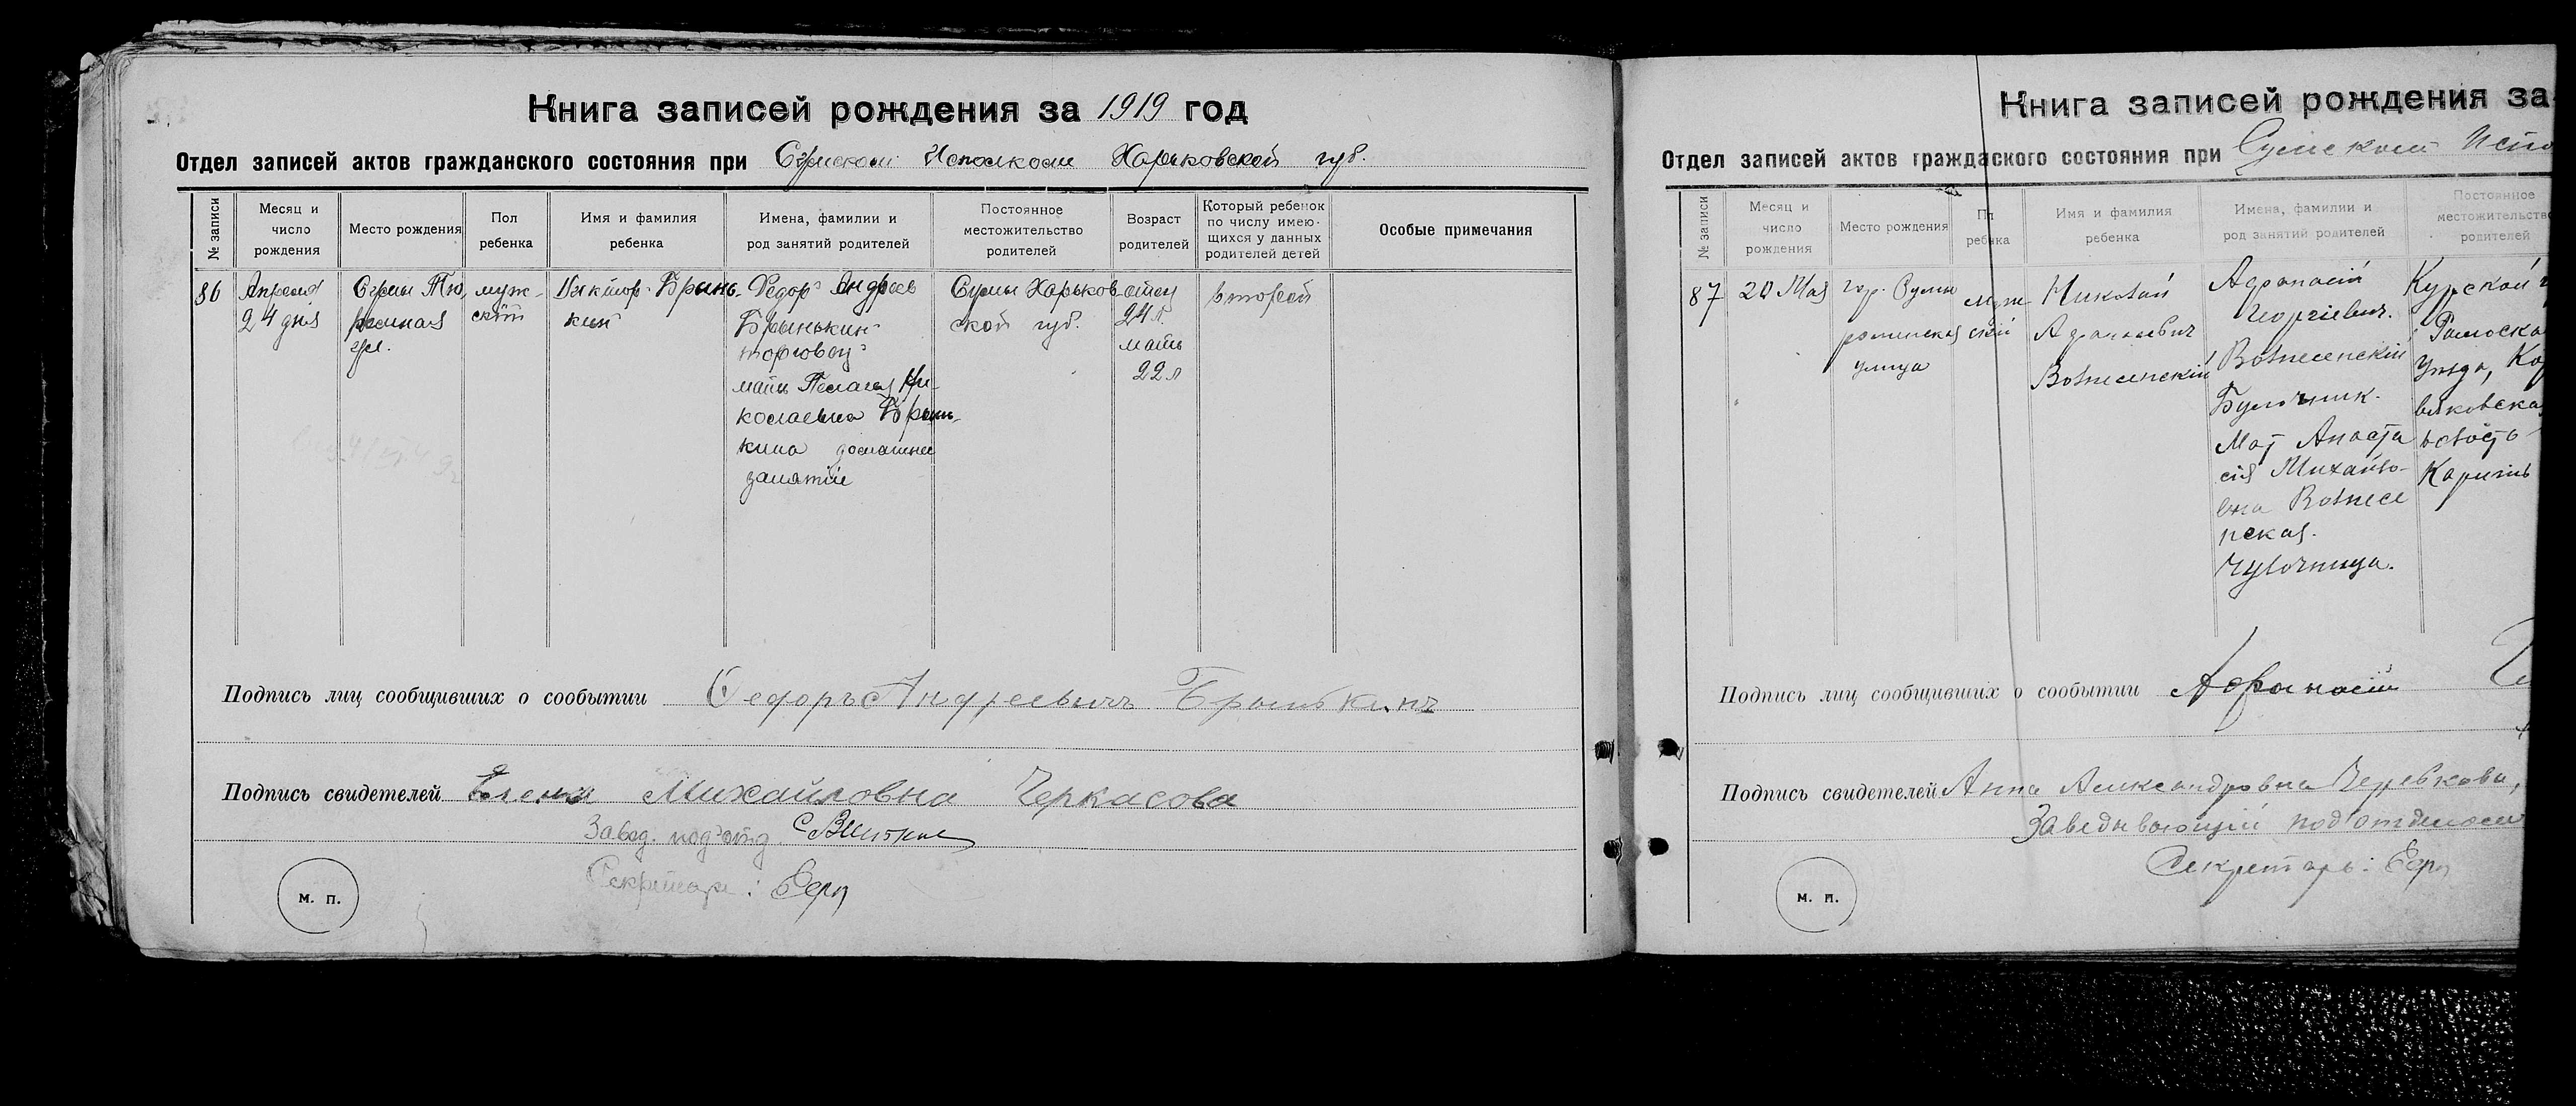 Книга записей рождения за 1919 год
Отдел записей актов гражданского состояния при Сумском Исполкоме Харьковской губ.
№ записи
Месяц и
число
рождения
Место рождения
Пол
ребенка
Имя и фамилия
ребенка
Имена, фамилии и
род занятий родителей
Постоянное
местожительство
родителей
Возраст
родителей
Который ребенок
по числу имею-
щихся у данных
родителей детей
Особые примечания
86
Апреля
24 дня
Сумы Тю
ремная
ул.
муж-
ской
Виктор Брынь-
кин
Федор Андреев
Брынькин
торговец
мать Пелагея Ни-
колаевна Брынь-
кина домашнее
занятие
Сумы Харьков
ской губ.
отец
24 л.
мать
22 л
второй
Подпись лиц сообщивших о сообытии Федоръ Андреевичъ Брынькинъ
Подпись свидетелей Елена Михайловна Черкасова
Завед. подотд.
Секретарь:
м. п.
Книга записей рождения за
Отдел записей актов гражданского состояния при Сумском Испо
№ записи
Месяц и
число
рождения
Место рождения
Пол
ребенка
Имя и фамилия
ребенка
Имена, фамилии и
род занятий родителей
Постоянное
местожительство
родителей
87
20 Мая
гор. Сумы
роменская
улица
Муж-
ской
Николай
Афанасиевич
Вознесенскій
Афанасій
Георгіевич.
Вознесенскій
Булочник.
Мат Анаста
сія Михайло-
вна Вознесе
нская.
Чулочница.
Курской
уезда,
волость
Подпись лиц сообщивших о сообытии Афанасій
Подпись свидетелей Анна Александровна
Заведывающий подотделом
Секретарь:
м. п.